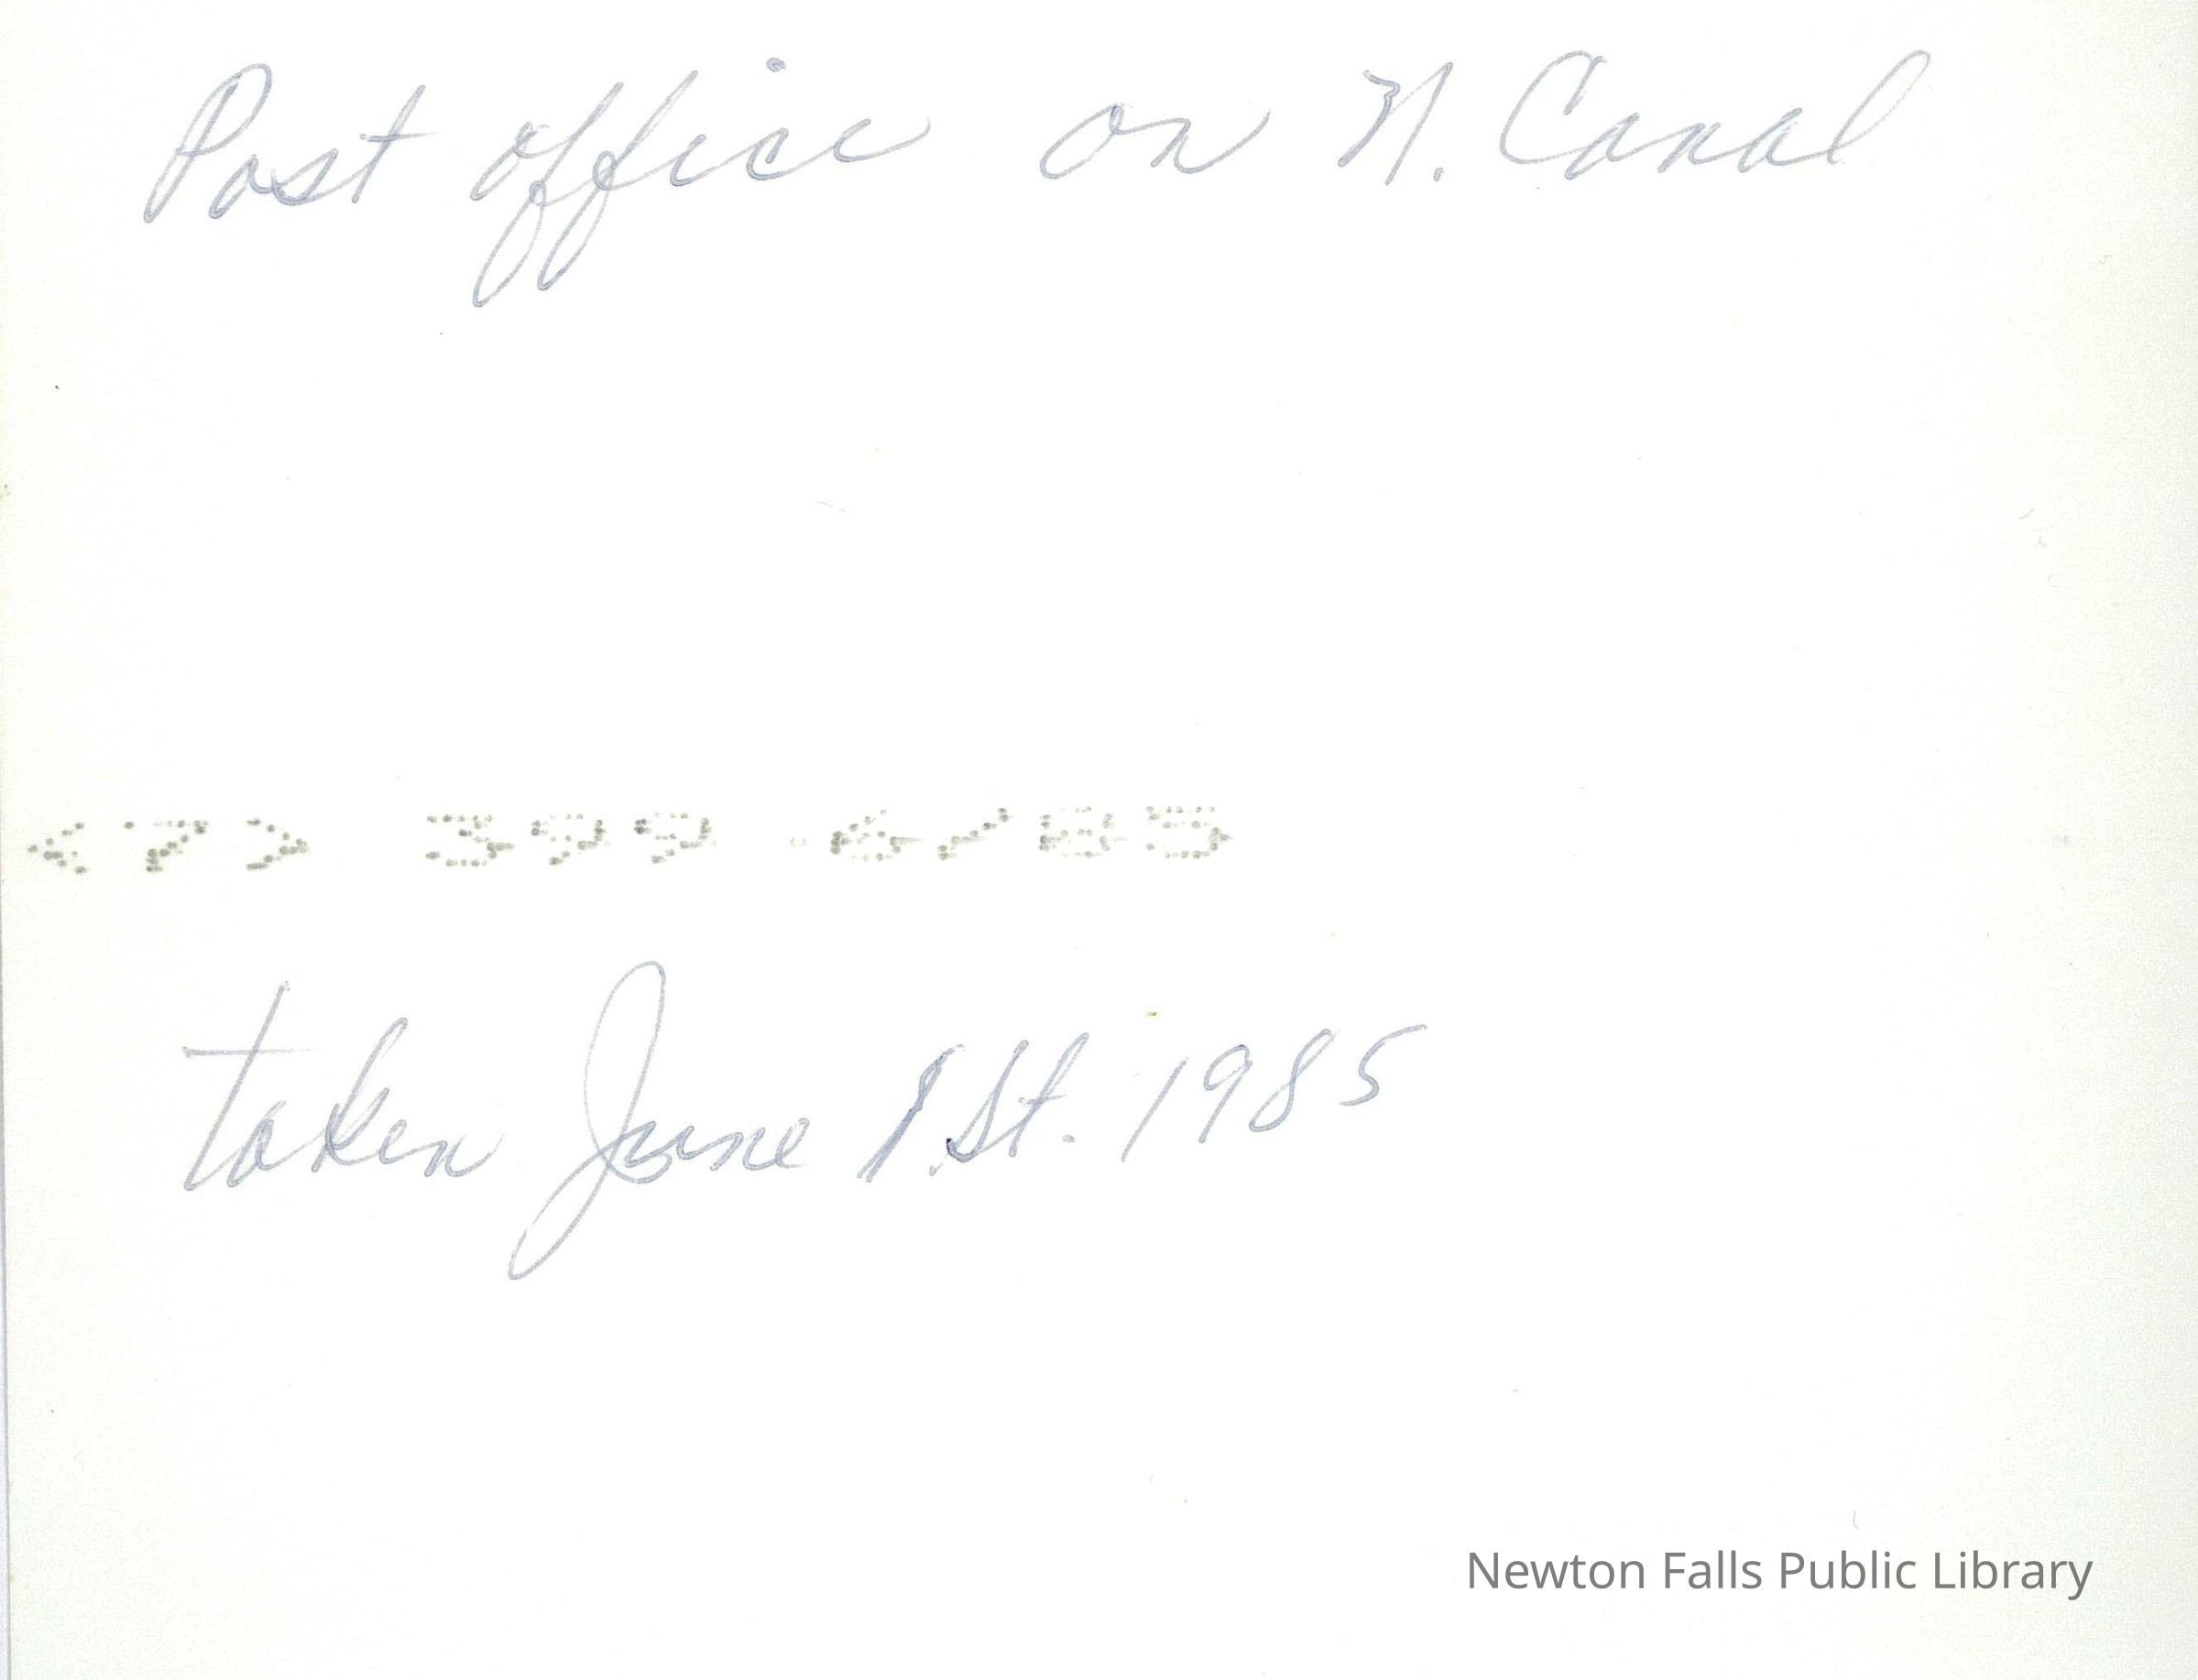 Post office on N. Canal
<7> 399 6/85
taken June 1st. 1985
Newton Falls Public Library